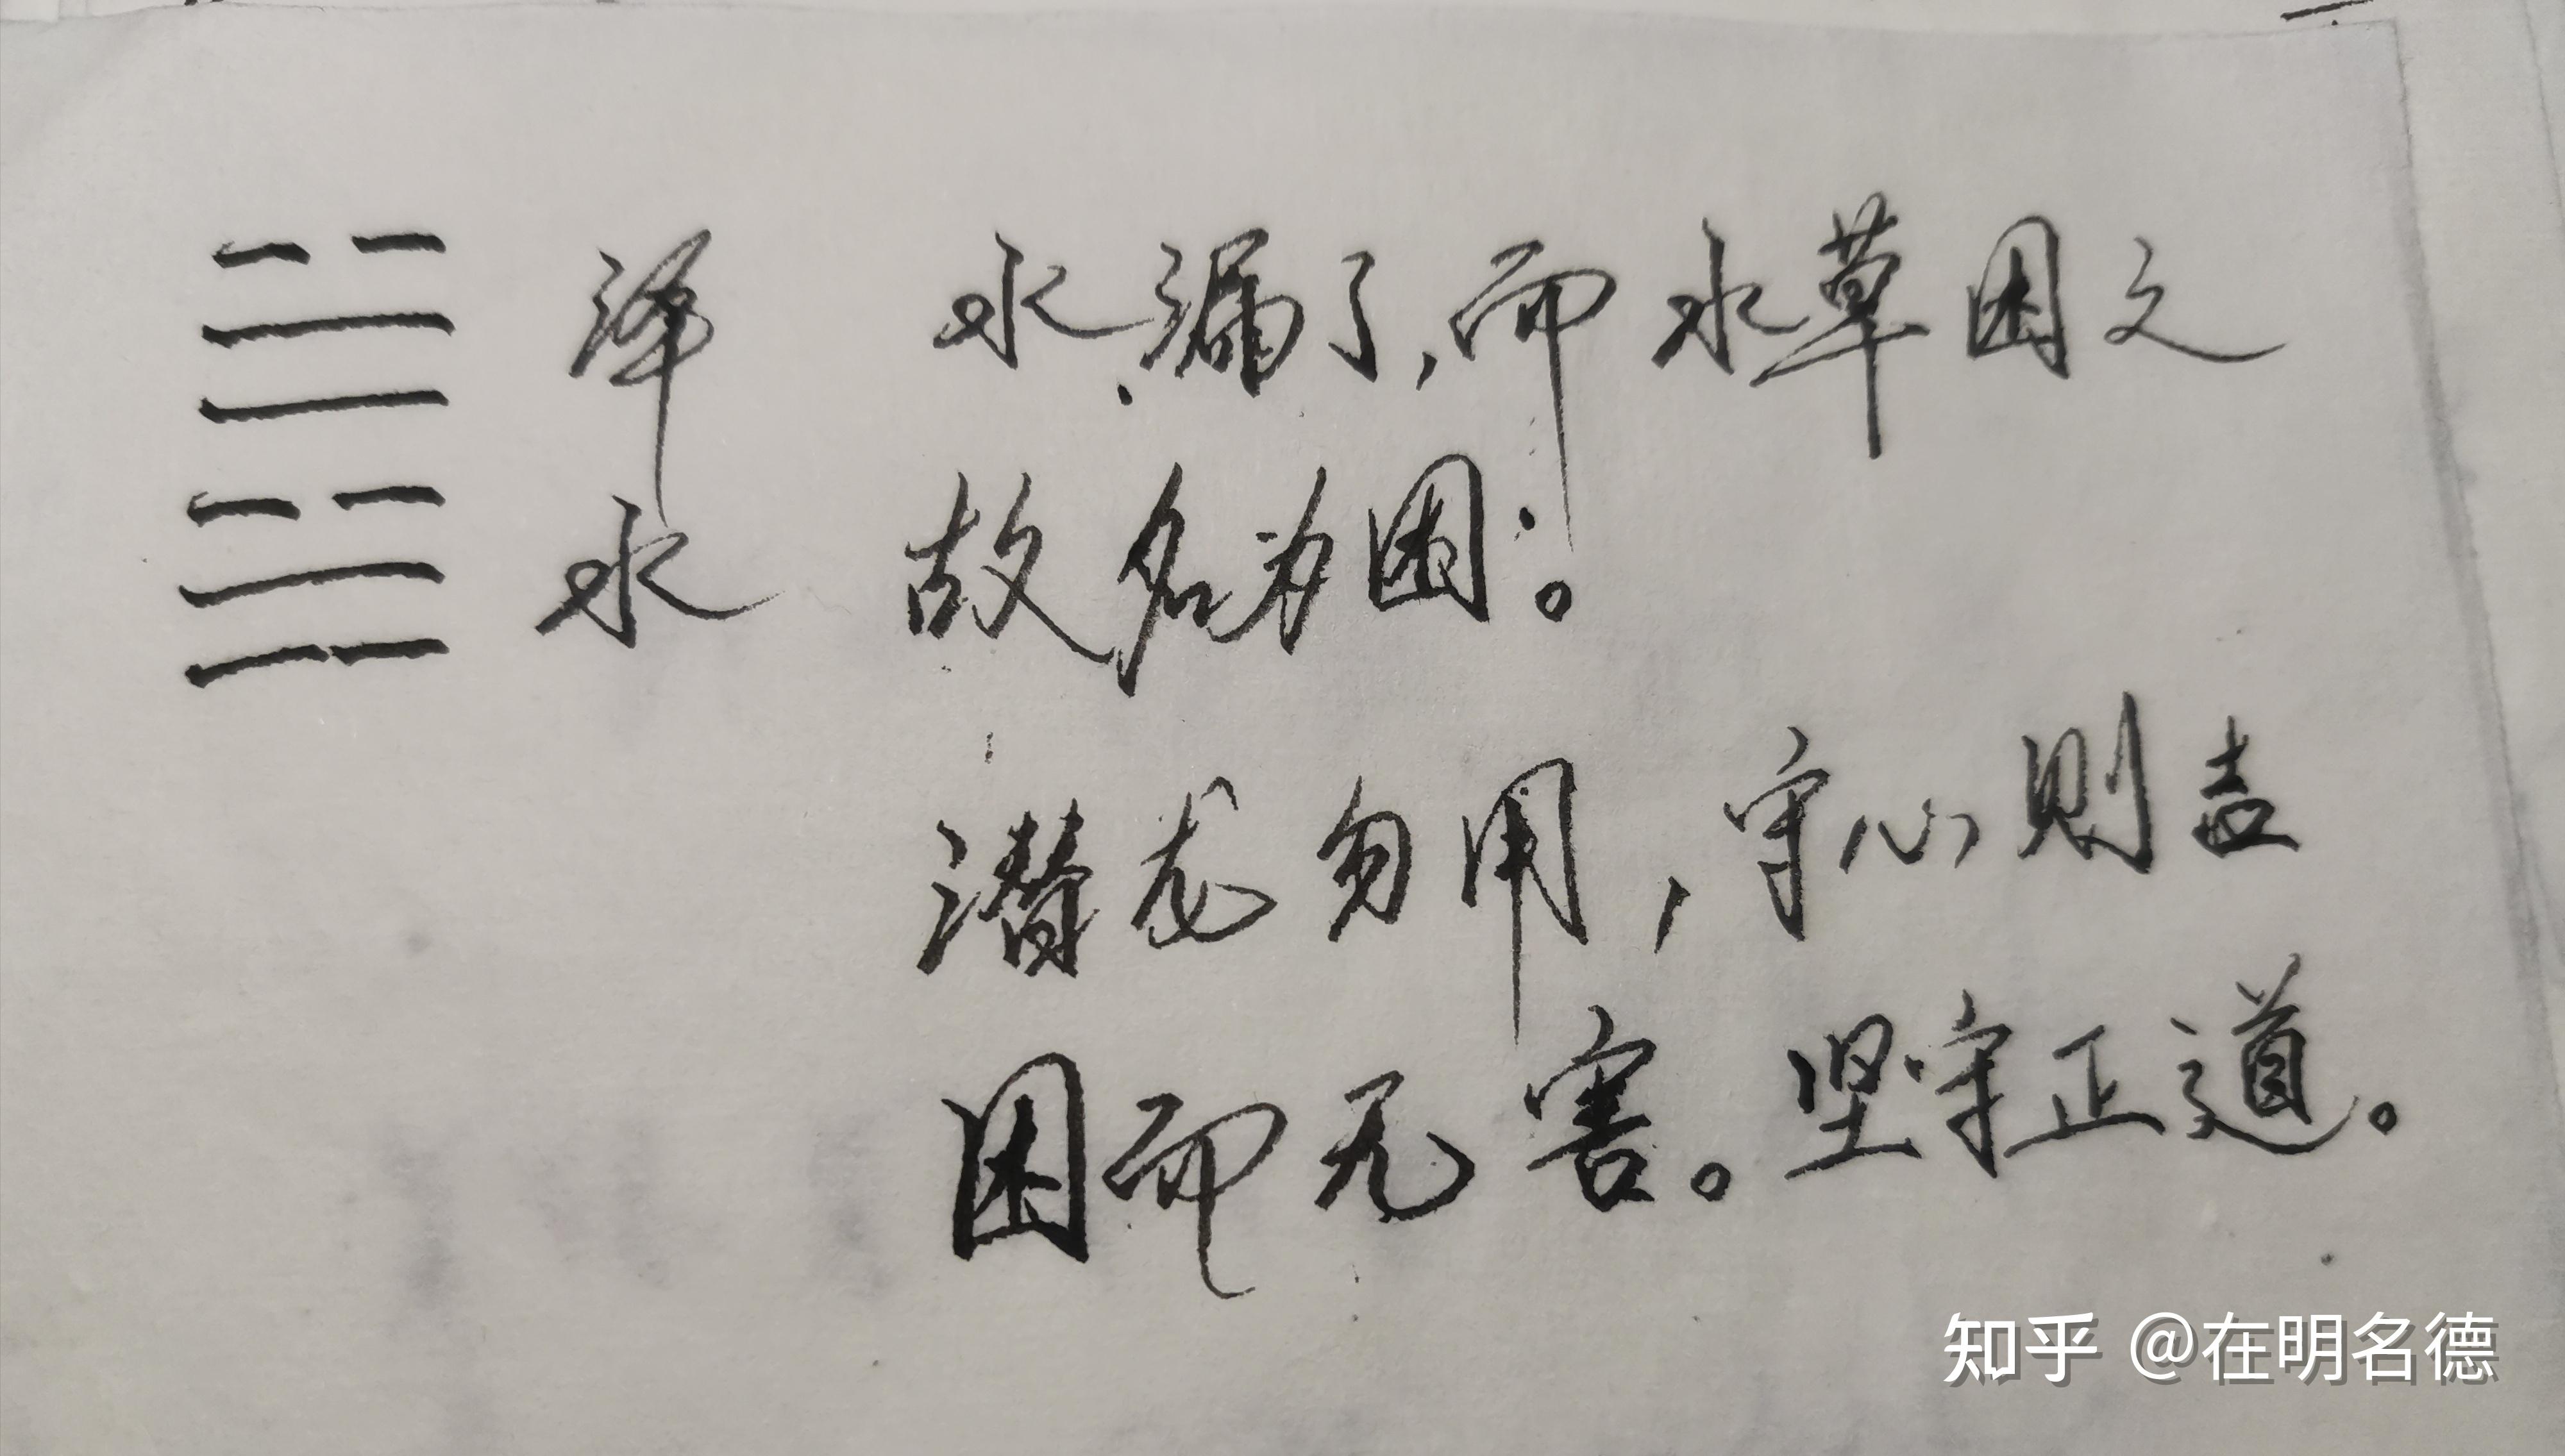 泽
水
水漏了,而水草困之
故名为困:。
潜龙勿用,守心则吉
困而无害。坚守正道。
知乎 @在明名德